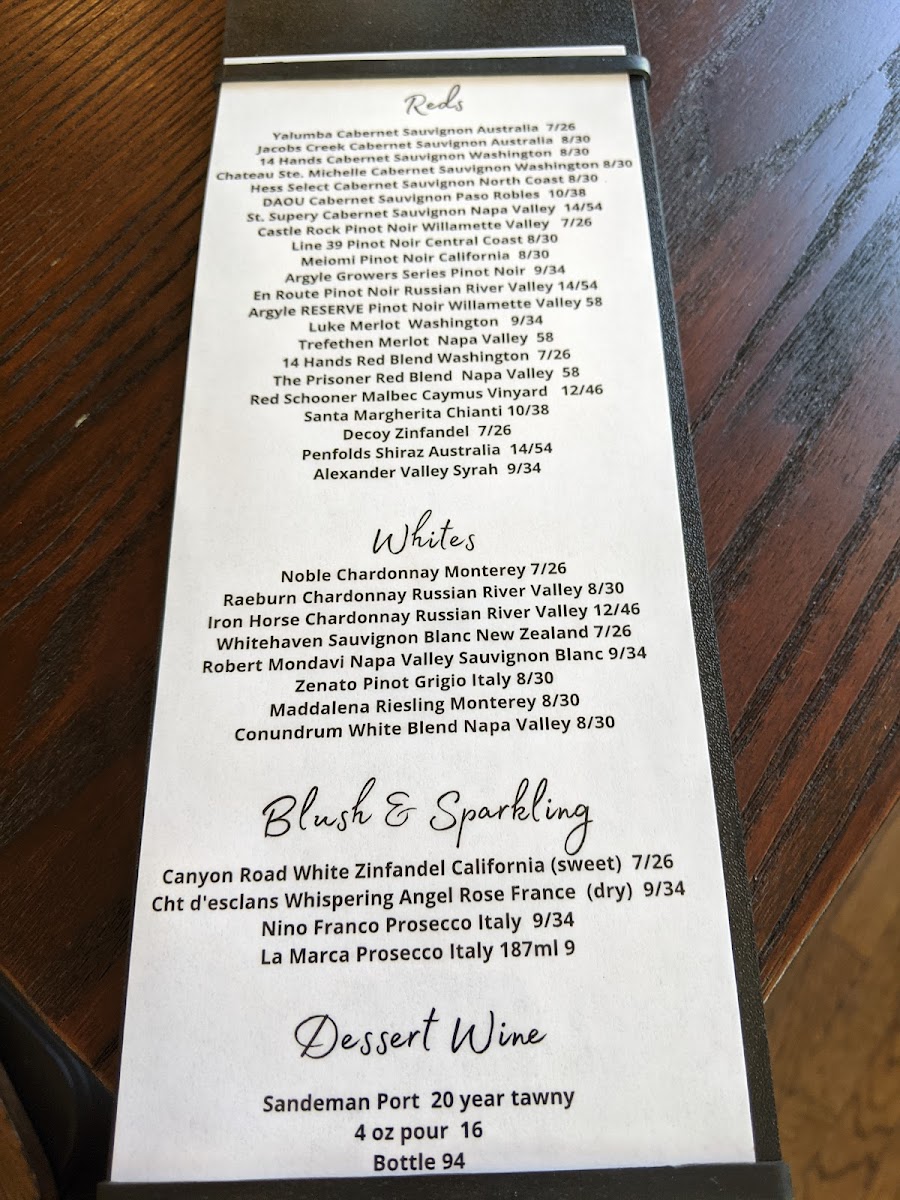 Reds
Yalumba Cabernet Sauvignon Australia 7/26
Jacobs Creek Cabernet Sauvignon Australia 8/30
14 Hands Cabernet Sauvignon Washington 8/30
Chateau Ste. Michelle Cabernet Sauvignon Washington 8/30
Hess Select Cabernet Sauvignon North Coast 8/30
DAOU Cabernet Sauvignon Paso Robles 10/38
St. Supery Cabernet Sauvignon Napa Valley 14/54
Castle Rock Pinot Noir Willamette Valley 7/26
Line 39 Pinot Noir Central Coast 8/30
Meiomi Pinot Noir California 8/30
Argyle Growers Series Pinot Noir 9/34
En Route Pinot Noir Russian River Valley 14/54
Argyle RESERVE Pinot Noir Willamette Valley 58
Luke Merlot Washington 9/34
Trefethen Merlot Napa Valley 58
14 Hands Red Blend Washington 7/26
The Prisoner Red Blend Napa Valley 58
Red Schooner Malbec Caymus Vinyard 12/46
Santa Margherita Chianti 10/38
Decoy Zinfandel 7/26
Penfolds Shiraz Australia 14/54
Alexander Valley Syrah 9/34
Whites
Noble Chardonnay Monterey 7/26
Raeburn Chardonnay Russian River Valley 8/30
Iron Horse Chardonnay Russian River Valley 12/46
Whitehaven Sauvignon Blanc New Zealand 7/26
Robert Mondavi Napa Valley Sauvignon Blanc 9/34
Zenato Pinot Grigio Italy 8/30
Maddalena Riesling Monterey 8/30
Conundrum White Blend Napa Valley 8/30
Blush & Sparkling
Canyon Road White Zinfandel California (sweet) 7/26
Cht d'esclans Whispering Angel Rose France (dry) 9/34
Nino Franco Prosecco Italy 9/34
La Marca Prosecco Italy 187ml 9
Dessert Wine
Sandeman Port 20 year tawny
4 oz pour 16
Bottle 94